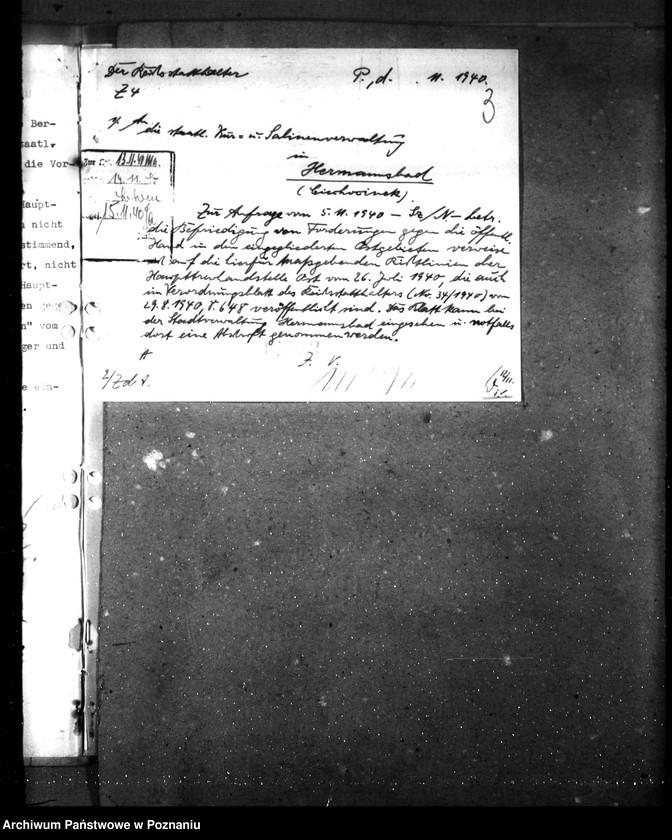 Ber-
taatl.
die Vor-
Haupt-
nicht
stimmend,
rt, nicht
Haupt-
en geg
en" vom
ger und
e ein-
Der Reichsstatthalter
P., d. . 11. 1940.
Z 4
3
1/ An
die staatl. Kur- u. Salinenverwaltung
in
Hermannsbad
(Ciechocinek)
13.11.40
14.11.
15.11.40
Zur Anfrage vom 5.11.1940 – /N– betr.
die Befriedigung von Forderungen gegen die öffentl.
Hand in den eingegliederten Ostgebieten verweise
ich auf die hierfür maßgebenden Richtlinien der
Haupttreuhandstelle Ost vom 26. Juli 1940, die auch
im Verordnungsblatt des Reichsstatthalters (No. 34/1940) vom
29.8.1940, S. 648 veröffentlicht sind. Das Blatt kann bei
der Stadtverwaltung Hermannsbad eingesehen u. notfalls
dort eine Abschrift genommen werden.
J. V.
2/ Z d A.
14/11.
Archiwum Państwowe w Poznaniu